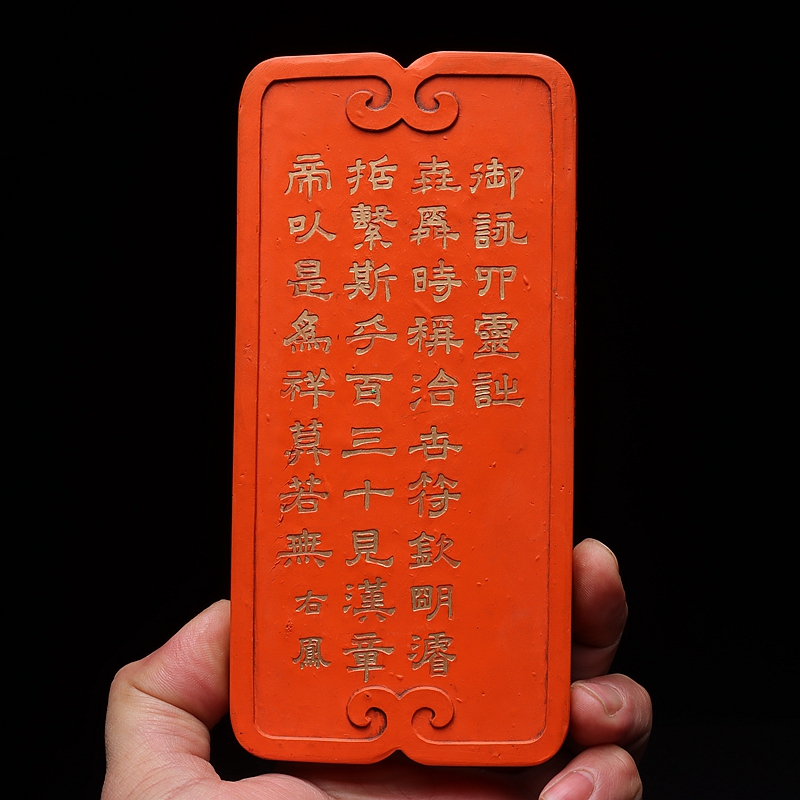 御詠卯靈詩
堯舜時稱治世符欽明濬
哲繫斯乎百三十見漢章
帝以是為祥算若無
右鳳